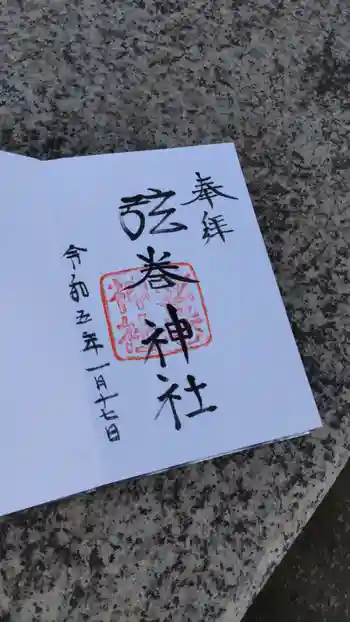 奉拝
弦巻神社
令和五年一月十七日